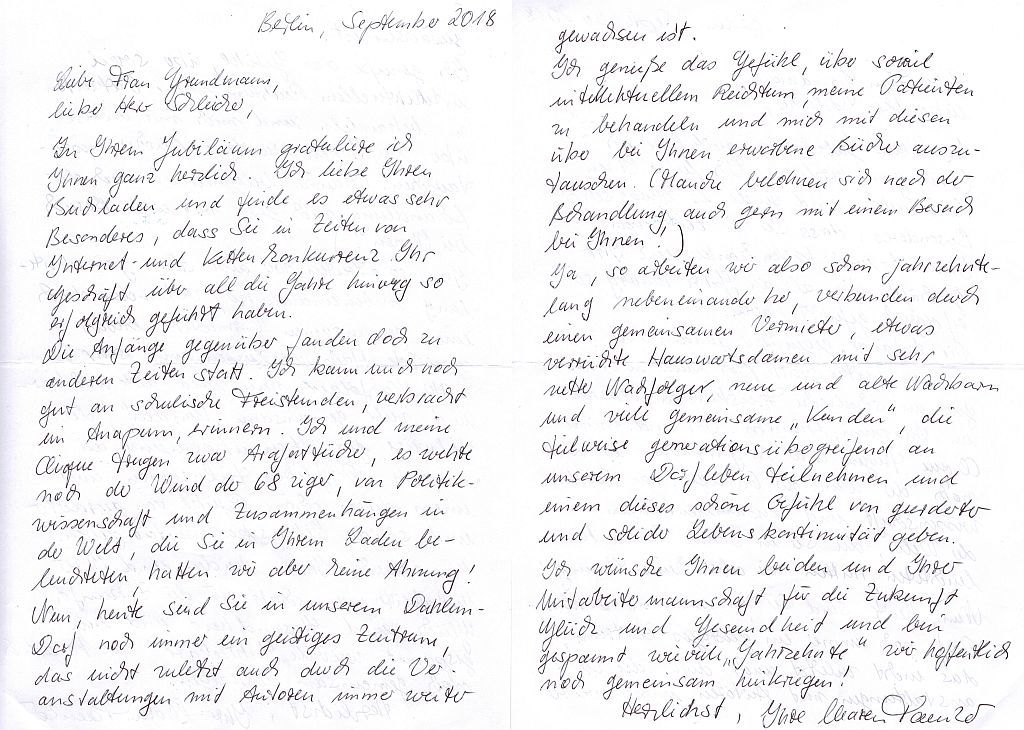 Berlin, September 2018
Liebe Frau Grundmann,
lieber Herr Schleicher,
Zu Ihrem Jubiläum gratuliere ich
Ihnen ganz herzlich. Ich liebe Ihren
Buchladen und finde es etwas sehr
Besonderes, dass Sie in Zeiten von
Internet- und Kettenkonkurrenz Ihr
Geschäft über all die Jahre hinweg so
erfolgreich geführt haben.
Die Anfänge gegenüber fanden doch zu
anderen Zeiten statt. Ich kann mich noch
gut an schulische Freistunden, verbracht
im Anapum, erinnern. Ich und meine
Clique trugen zwar Arafattücher, es wehte
noch der Wind der 68ziger, von Politik-
wissenschaft und Zusammenhängen in
der Welt, die Sie in Ihrem Laden be-
leuchteten, hatten wir aber keine Ahnung!
Nun, heute sind Sie in unserem Dahlem-
Dorf noch immer ein geistiges Zentrum,
das nicht zuletzt auch durch die Ver-
anstaltungen mit Autoren immer weiter
gewachsen ist.
Ich genieße das Gefühl, über soviel
intellektuellem Reichtum, meine Patienten
zu behandeln und mich mit diesen
über bei Ihnen erworbene Bücher auszu-
tauschen. (Manche belohnen sich nach der
Behandlung auch gern mit einem Besuch
bei Ihnen!)
Ja, so arbeiten wir also schon jahrzehnte-
lang nebeneinander her, verbunden durch
einen gemeinsamen Vermieter, etwas
verrückte Hauswartsdamen mit sehr
netter Nachfolger, neue und alte Nachbarn
und viele gemeinsame „Kunden", die
teilweise generationsübergreifend an
unserem Dorfleben teilnehmen und
einem dieses schöne Gefühl von geerdeter
und solider Lebenskontinuität geben.
Ich wünsche Ihnen beiden und Ihrer
Mitarbeitermannschaft für die Zukunft
Glück und Gesundheit und bin
gespannt wieviele „Jahrzehnte" wir hoffentlich
noch gemeinsam hinkriegen!
Herzlichst, Ihre Maren